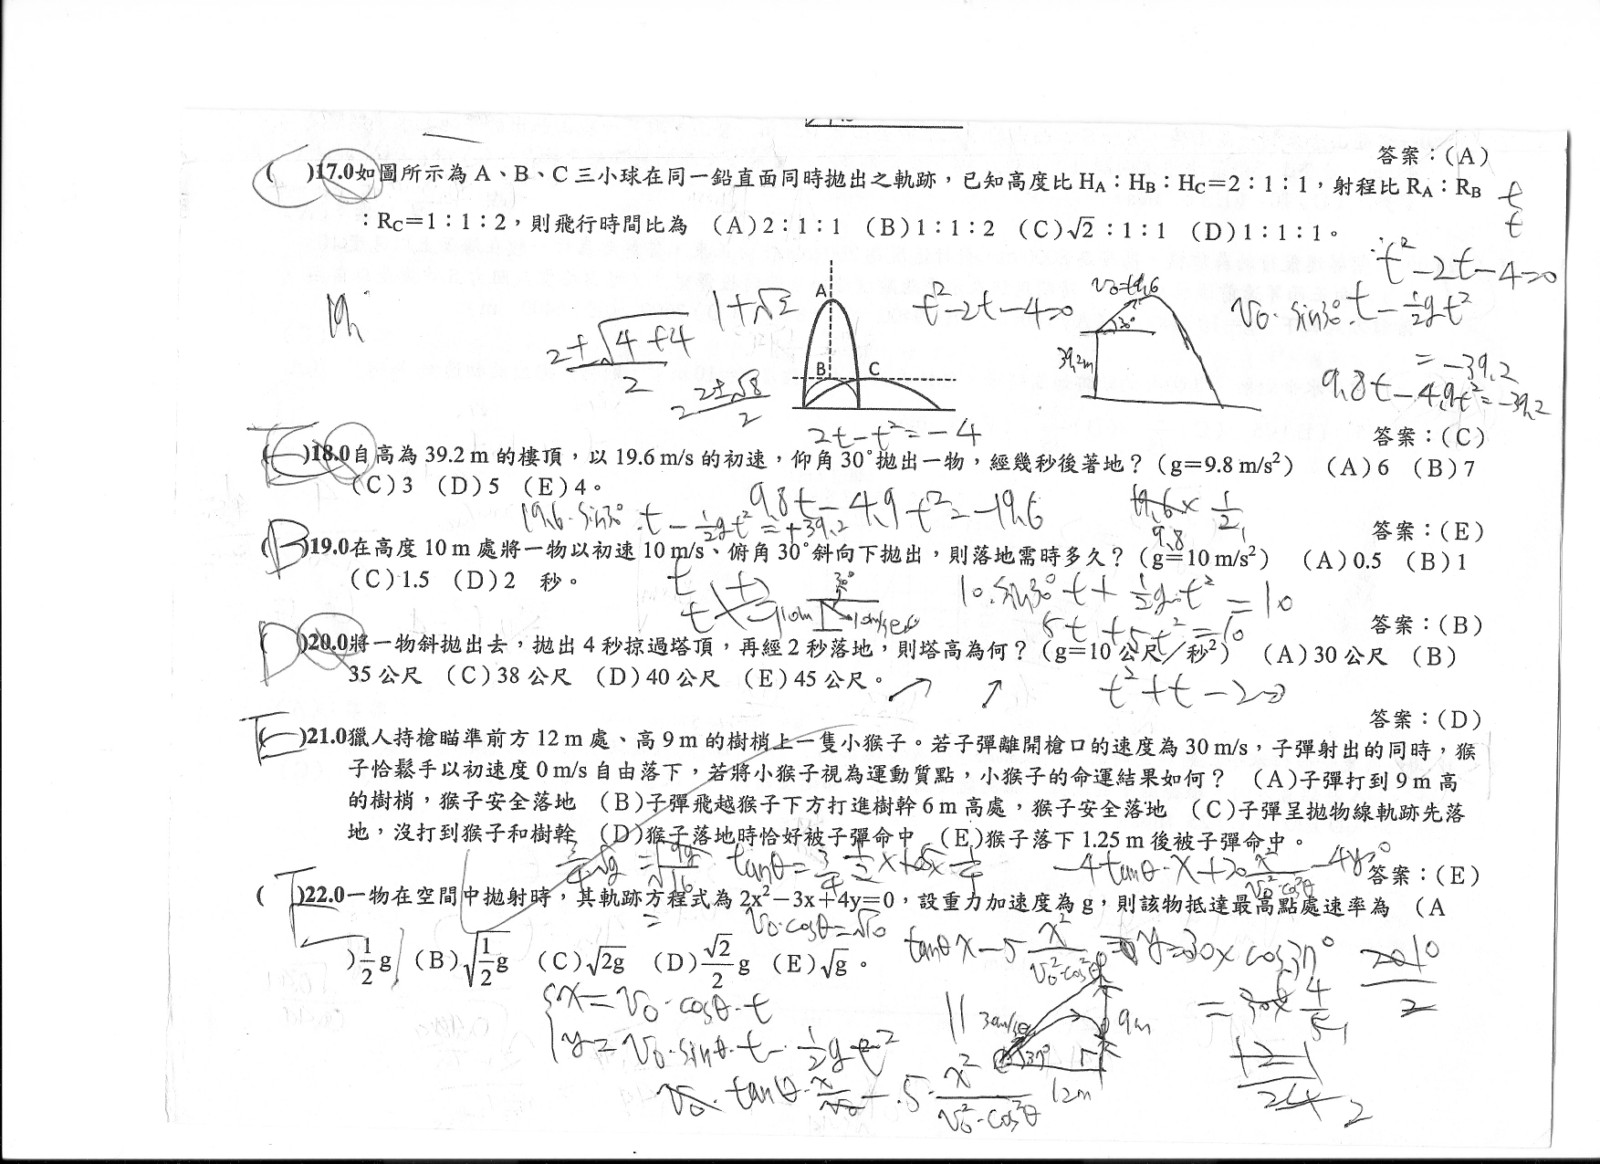 答案：(A)
( C )17.0如圖所示為 A、B、C 三小球在同一鉛直面同時拋出之軌跡，已知高度比 HA：HB：HC＝2：1：1，射程比 RA：RB
：RC＝1：1：2，則飛行時間比為 (A) 2：1：1 (B) 1：1：2 (C) √2：1：1 (D) 1：1：1。
t
t
t²-2t-4=0
1+√2
t²-2t-4=0
V₀=19.6
30°
39.2m
V₀·sin30°·t-½gt²
=-39.2
9.8t-4.9t²=-39.2
2±√4+4
2
2±√8
2
A
B
C
2t-t²=-4
答案：(C)
( E )18.0自高為 39.2 m 的樓頂，以 19.6 m/s 的初速，仰角 30°拋出一物，經幾秒後著地？(g＝9.8 m/s²) (A) 6 (B) 7
(C) 3 (D) 5 (E) 4。
19.6·sin30°·t-½gt²=+39.2
9.8t-4.9t²=-19.6
19.6×½
9.8
答案：(E)
( B )19.0在高度 10 m 處將一物以初速 10 m/s、俯角 30°斜向下拋出，則落地需時多久？(g＝10 m/s²) (A) 0.5 (B) 1
(C) 1.5 (D) 2 秒。
t
t
30°
10m
10m/sec
10·sin30°t+½g·t²=10
5t+5t²=10
答案：(B)
( D )20.0將一物斜拋出去，拋出 4 秒掠過塔頂，再經 2 秒落地，則塔高為何？(g＝10 公尺／秒²) (A) 30 公尺 (B)
35 公尺 (C) 38 公尺 (D) 40 公尺 (E) 45 公尺。
t²+t-2=0
答案：(D)
( E )21.0獵人持槍瞄準前方 12 m 處、高 9 m 的樹梢上一隻小猴子。若子彈離開槍口的速度為 30 m/s，子彈射出的同時，猴
子恰鬆手以初速度 0 m/s 自由落下，若將小猴子視為運動質點，小猴子的命運結果如何？ (A)子彈打到 9 m 高
的樹梢，猴子安全落地 (B)子彈飛越猴子下方打進樹幹 6 m 高處，猴子安全落地 (C)子彈呈拋物線軌跡先落
地，沒打到猴子和樹幹 (D)猴子落地時恰好被子彈命中 (E)猴子落下 1.25 m 後被子彈命中。
tanθ=3/4
答案：(E)
( E )22.0一物在空間中拋射時，其軌跡方程式為 2x²－3x＋4y＝0，設重力加速度為 g，則該物抵達最高點處速率為 (A
)½g (B)√½g (C)√2g (D)√2/2 g (E)√g。
V₀·cosθ=√10
tanθx-5 x²/V₀²·cos²θ
30×cos37°
=30×4/5
x=V₀·cosθ·t
y=V₀·sinθ·t-½gt²
30m/sec
37°
9m
12m
V₀·tanθ·x/V₀-5·x²/V₀²·cos²θ